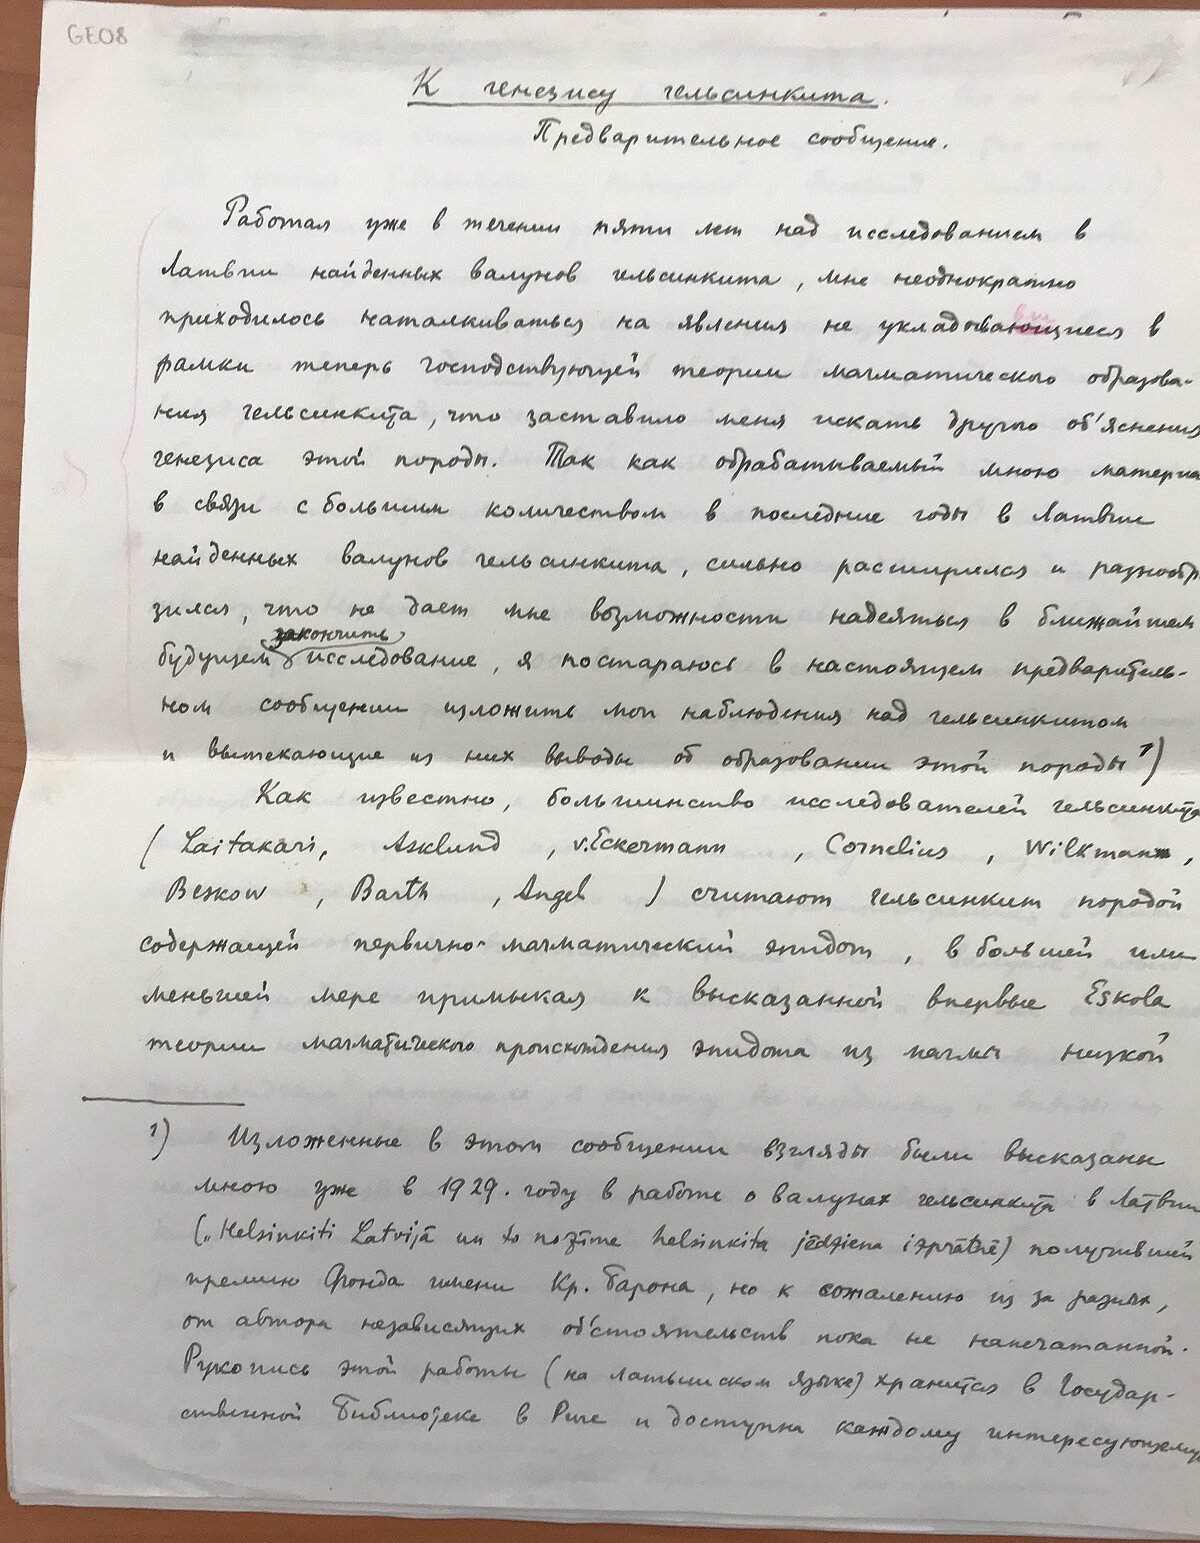 GEO8
К генезису гельсинкита.
Предварительное сообщение.
Работая уже в течении пяти лет над исследованием в
Латвии найденных валунов гельсинкита, мне неоднократно
приходилось наталкиваться на явления не укладовающиеся в
рамки теперь господствующей теории магматического образова-
ния гельсинкита, что заставило меня искать другого об'яснения
генезиса этой породы. Так как обрабатываемый мною материа
в связи с большим количеством в последние годы в Латвии
найденных валунов гельсинкита, сильно расширился и разнообр
зился, что не дает мне возможности надеяться в ближайшем
закончить
будущем исследование, я постараюсь в настоящем предваритель-
ном сообщении изложить мои наблюдения над гельсинкитом
и вытекающие из них выводы об образовании этой породы 1)
Как известно, большинство исследователей гельсинкита
(Laitakari, Asklund, v.Eckermann, Cornelius, Wilkman,
Beskow, Barth, Angel) считают гельсинкит породой
содержащей первично-магматический эпидот, в большей или
меньшей мере примыкая к высказанной впервые Eskola
теории магматического происхождения эпидота из магмы низкой
1) Изложенные в этом сообщении взгляды были высказаны
мною уже в 1929. году в работе о валунах гельсинкита в Латвии
(„Helsinkiti Latvijā un to nozīme helsinkita jēdziena izpratnē) получившей
премию Фонда имени Кр. Барона, но к сожалению из за разных,
от автора независящих об'стоятельств пока не напечатанной.
Рукопись этой работы (на латышском языке) хранится в Государ-
ственной Библиотеке в Риге и доступна каждому интересующемуся